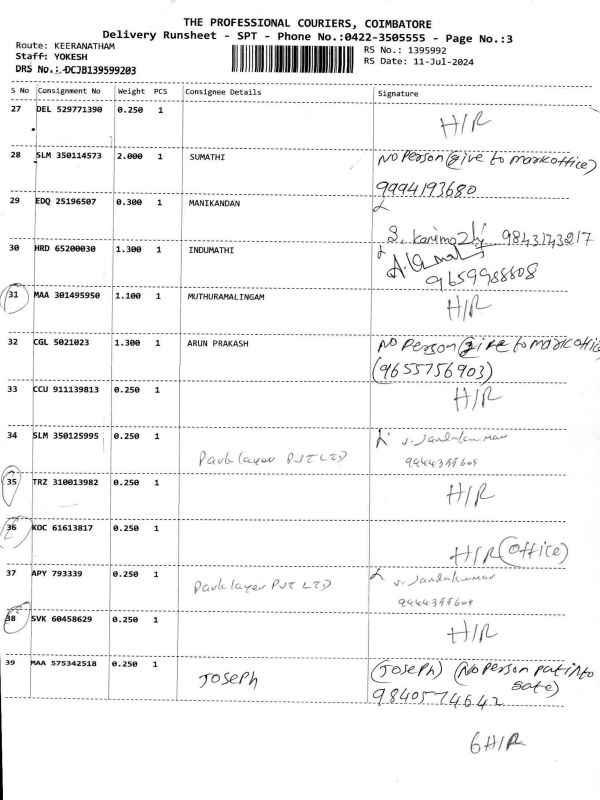 THE PROFESSIONAL COURIERS, COIMBATORE
Delivery Runsheet - SPT - Phone No.:0422-3505555 - Page No.:3
Route: KEERANATHAM
Staff: YOKESH
DRS No.:.DCJB139599203
RS No.: 1395992
RS Date: 11-Jul-2024
S No Consignment No Weight PCS Consignee Details Signature
27 DEL 529771390 0.250 1 H/R
28 SLM 350114573 2.000 1 SUMATHI No Person (give to mark office)
9994193680
29 EDQ 25196507 0.300 1 MANIKANDAN
9843143217
30 HRD 65200030 1.300 1 INDUMATHI
9659988808
31 MAA 301495950 1.100 1 MUTHURAMALINGAM H/R
32 CGL 5021023 1.300 1 ARUN PRAKASH No Person (give to mark offic
(9655756903)
33 CCU 911139813 0.250 1 H/R
34 SLM 350125995 0.250 1 Parklayer PVT LTD
35 TRZ 310013982 0.250 1 H/R
36 KOC 61613817 0.250 1 H/R (office)
37 APY 793339 0.250 1 Parklayer PVT LTD
38 SVK 60458629 0.250 1 H/R
39 MAA 575342518 0.250 1 JOSEPH (JOSEPH) (No Person put into
9840574642
6 H/R